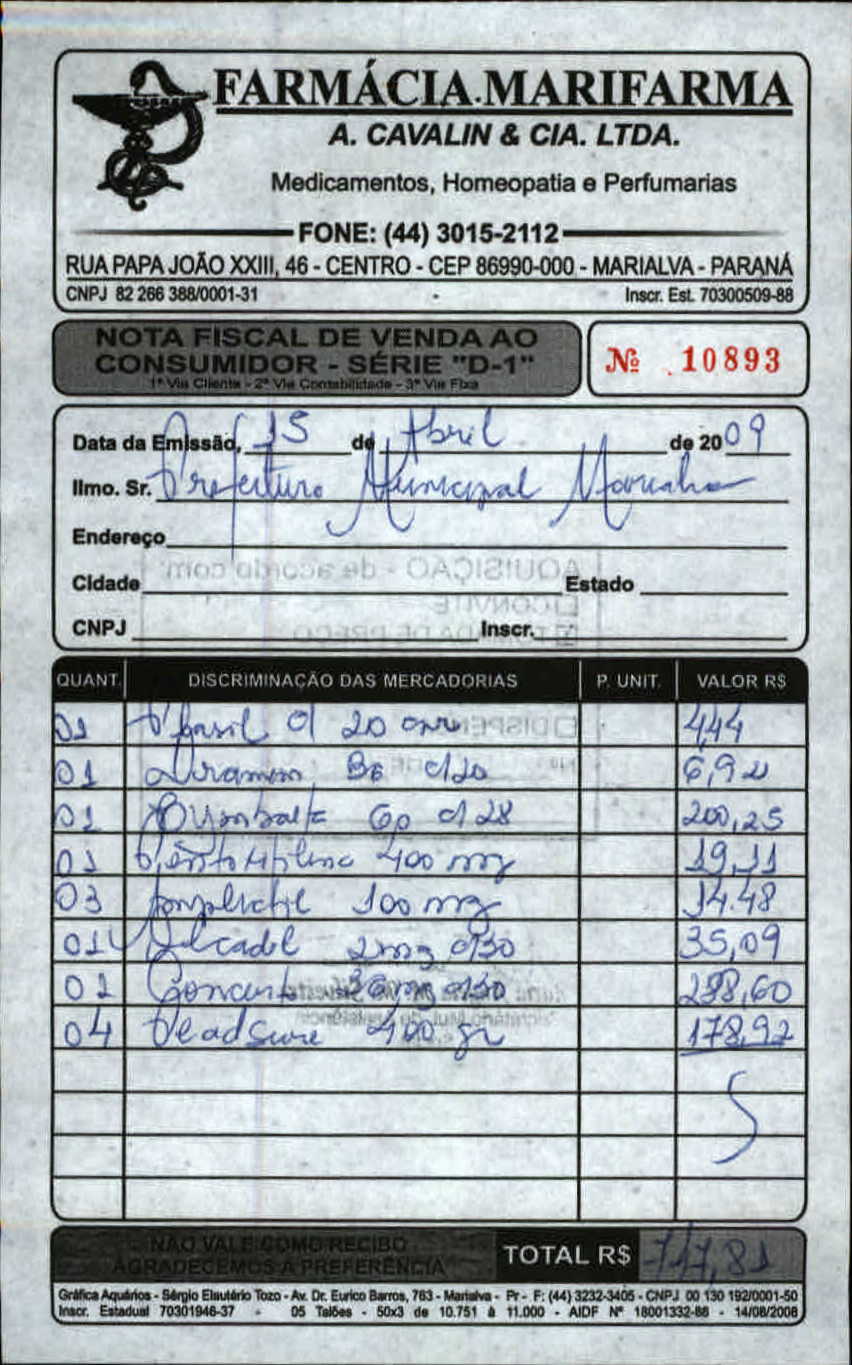 FARMÁCIA MARIFARMA
A. CAVALIN & CIA. LTDA.
Medicamentos, Homeopatia e Perfumarias
FONE: (44) 3015-2112
RUA PAPA JOÃO XXIII, 46 - CENTRO - CEP 86990-000 - MARIALVA - PARANÁ
CNPJ 82 266 388/0001-31 Inscr. Est. 70300509-88
NOTA FISCAL DE VENDA AO
CONSUMIDOR - SÉRIE "D-1"
1ª Via Cliente - 2ª Via Contabilidade - 3ª Via Fixa
Nº 10893
Data da Emissão, 15 de Abril de 2009
Ilmo. Sr. Prefeitura Municipal
Endereço
Cidade Estado
CNPJ Inscr.
QUANT. DISCRIMINAÇÃO DAS MERCADORIAS P. UNIT. VALOR R$
01 20 444
01 B6 6,92
01 60 c/ 28 200,25
01 400 mg 19,11
03 100 mg 14.48
01 2mg c/30 35,09
01 288,60
04 400 gr 178,92
NÃO VALE COMO RECIBO
AGRADECEMOS A PREFERÊNCIA
TOTAL R$ 747,81
Gráfica Aquários - Sérgio Elautério Tozo - Av. Dr. Eurico Barros, 763 - Marialva - Pr - F: (44) 3232-3405 - CNPJ 00 130 192/0001-50
Inscr. Estadual 70301946-37 - 05 Talões - 50x3 de 10.751 à 11.000 - AIDF Nº 18001332-88 - 14/08/2008